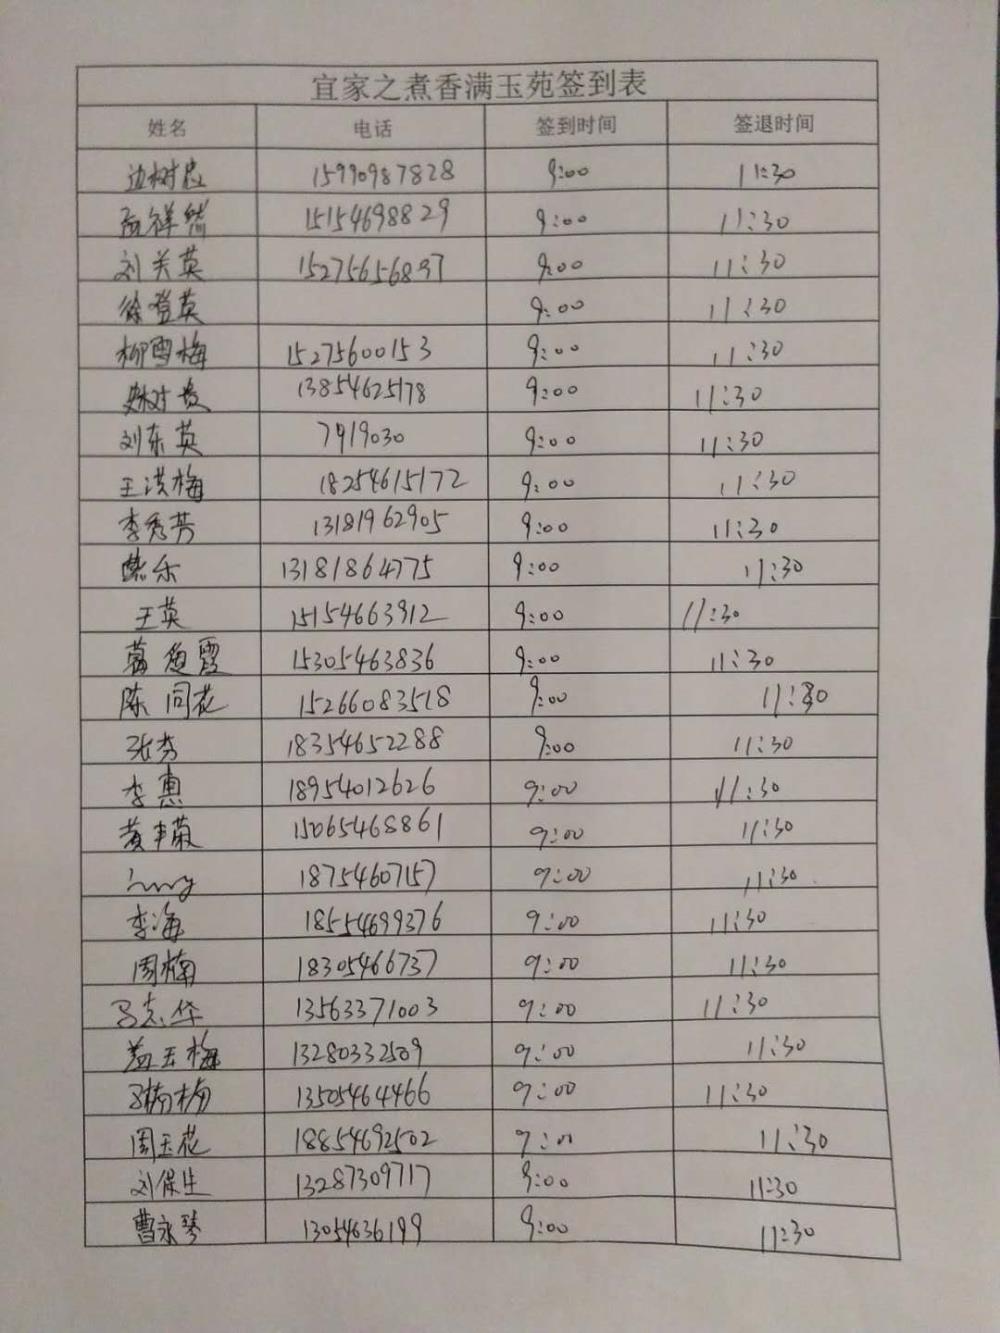 宜家之煮香满玉苑签到表
姓名 电话 签到时间 签退时间
边树忠 15990987828 9:00 11:30
孟祥 15154698829 9:00 11:30
刘关英 15275656897 9:00 11:30
徐登英 9:00 11:30
柳雪梅 15275600153 9:00 11:30
13854625178 9:00 11:30
刘东英 7919030 9:00 11:30
王洪梅 18254615172 9:00 11:30
李秀芳 13181962905 9:00 11:30
乐 13181864775 9:00 11:30
王英 15154663912 9:00 11:30
葛 霞 15305463836 9:00 11:30
陈同花 15266083518 9:00 11:30
张芬 18354652288 9:00 11:30
李惠 18954012626 9:00 11:30
黄丰菊 15065468861 9:00 11:30
18754607157 9:00 11:30
李海 18554699376 9:00 11:30
周楠 18305466737 9:00 11:30
吕志华 13563371003 9:00 11:30
盖玉梅 13280332509 9:00 11:30
13505464466 9:00 11:30
周玉花 18854692502 9:01 11:30
刘保生 13287309717 9:00 11:30
曹永琴 13054636199 9:00 11:30